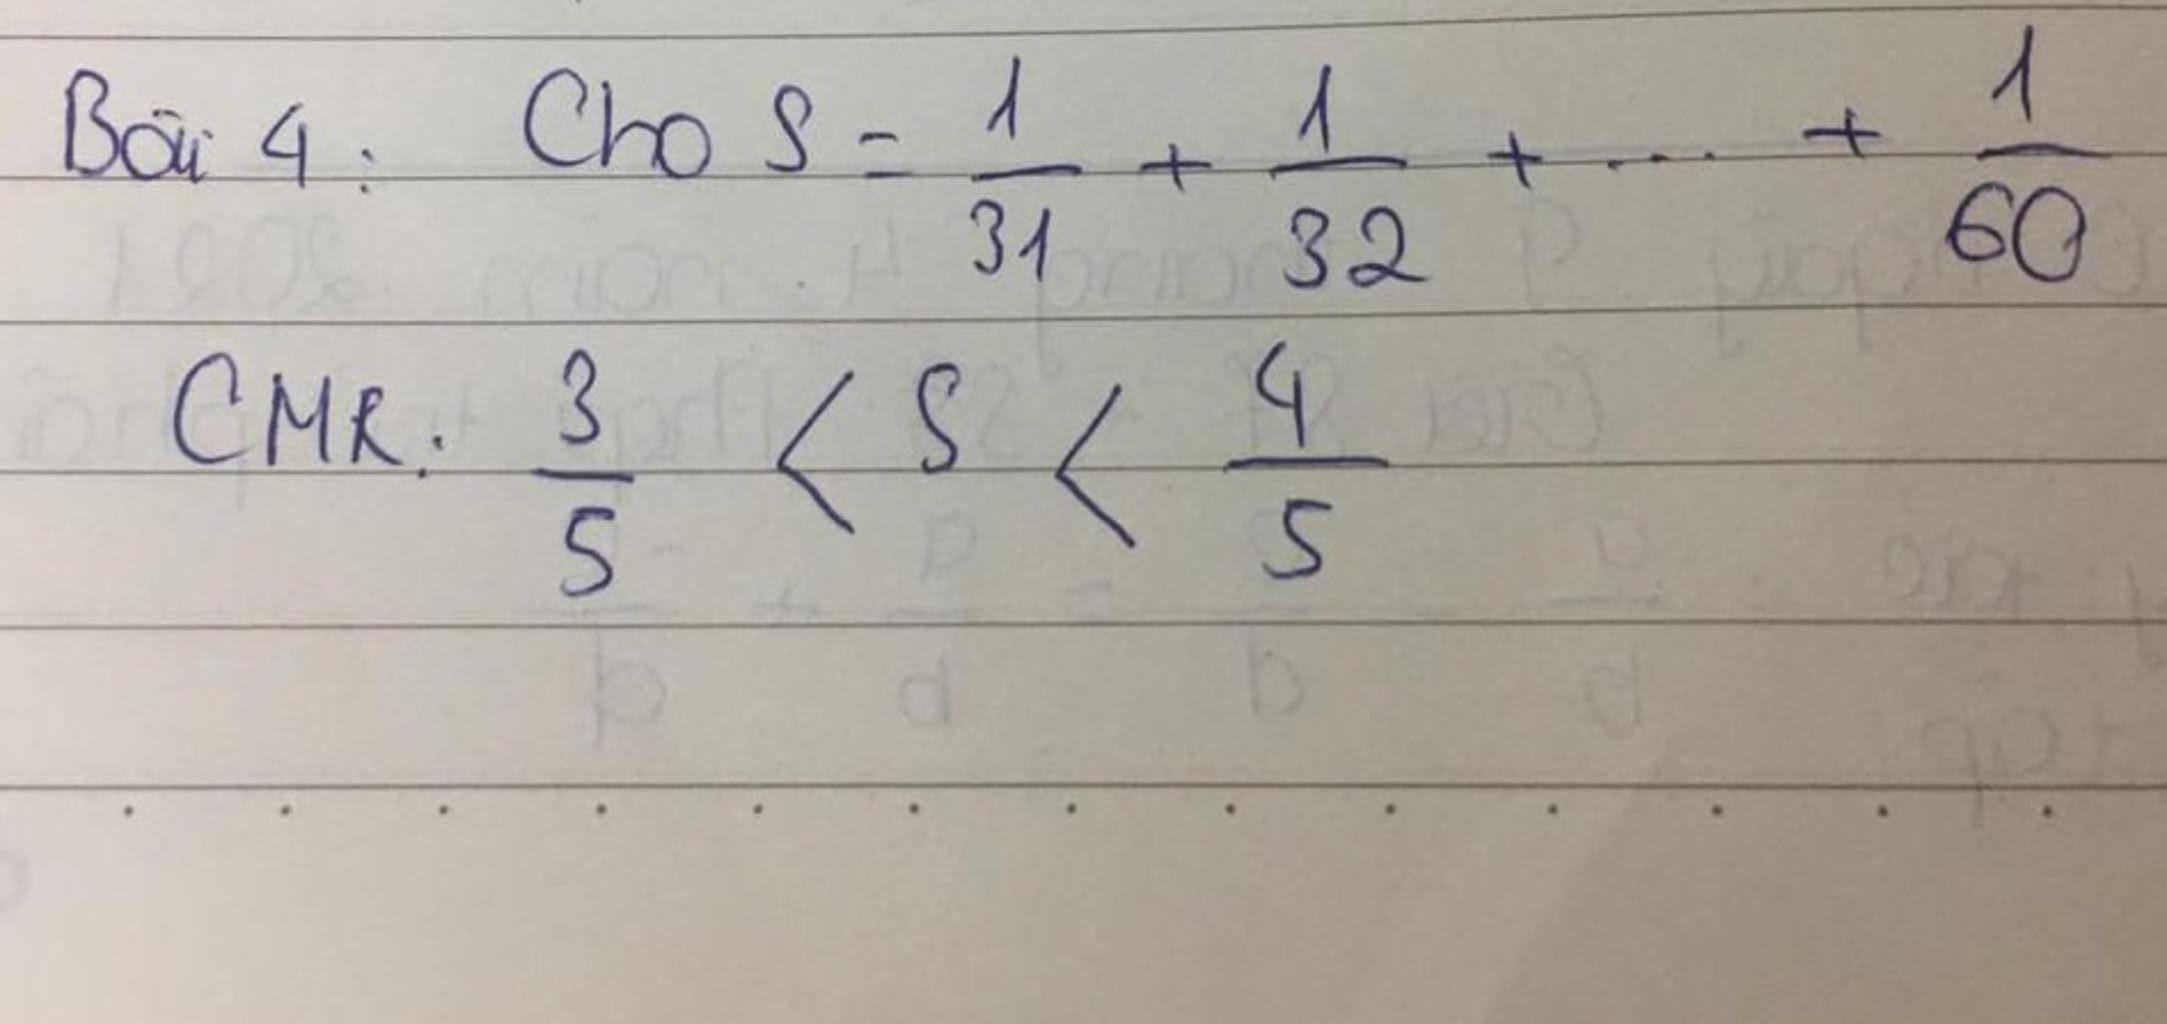 Bài 4: Cho S = 1/31 + 1/32 + .... + 1/60
CMR: 3/5 < S < 4/5